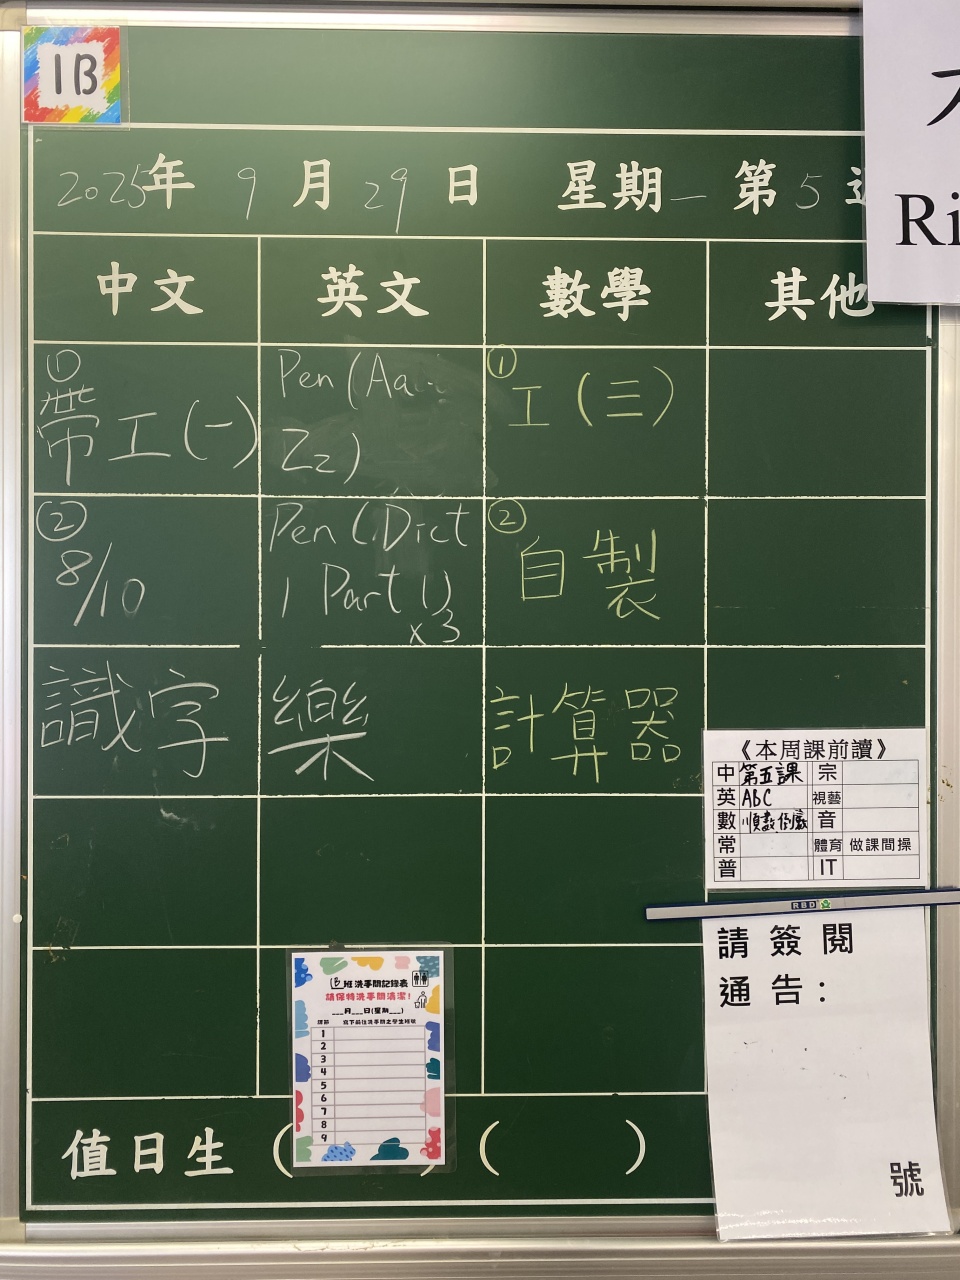 1B
2025年 9月 29日 星期一 第5
Ri
中文 英文 數學 其他
①
帶工(一)
Pen (Aa...
Zz)
①
工(三)
②
8/10
Pen (Dict
1 Part 1)
x3
②
自製
識字
樂
計算器
《本周課前讀》
中 第五課 宗
英 ABC 視藝
數 順數 倒數 音
常 體育 做課間操
普 IT
RBD
請簽閱
通告:
號
1B班洗手間記錄表
請保持洗手間清潔!
___月___日(星期___)
課節 寫下前往洗手間之學生班號
1
2
3
4
5
6
7
8
9
值日生 ( ) ( )